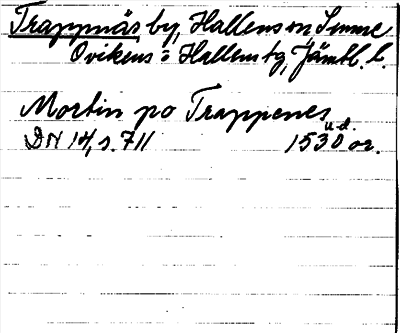 Trappnäs by, Hallens sn Sunne
Ovikens o Hallens tg, Jämtl. l.
Mortin po Trappenes
u.d.
DN 14, s. 711 1530 or.